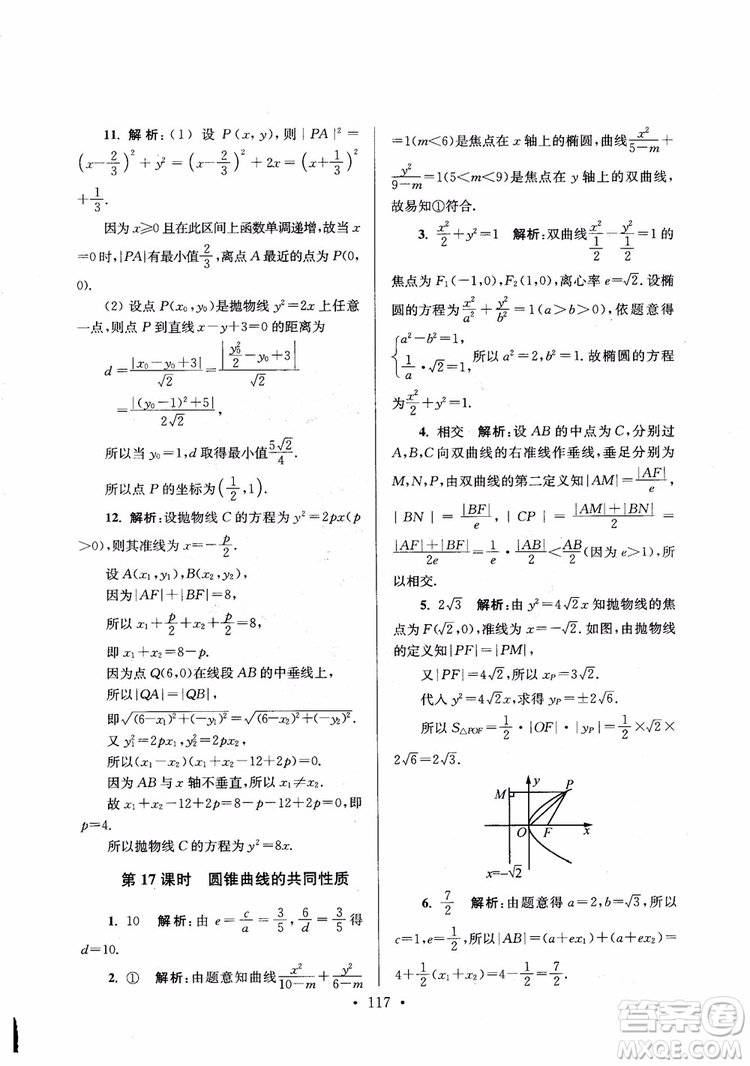 11. 解析:(1) 设 P(x,y),则|PA|²=
(x-2/3)²+y²=(x-2/3)²+2x=(x+1/3)²
+1/3.
因为 x≥0且在此区间上函数单调递增,故当 x
=0时,|PA|有最小值2/3,离点 A 最近的点为 P(0,
0).
(2) 设点 P(x₀,y₀)是抛物线 y²=2x 上任意
一点,则点 P 到直线 x-y+3=0 的距离为
d=|x₀-y₀+3|/√2=|y₀²/2-y₀+3|/√2
=|(y₀-1)²+5|/2√2,
所以当 y₀=1,d 取得最小值5√2/4.
所以点 P 的坐标为(1/2,1).
12. 解析:设抛物线 C 的方程为 y²=2px(p
>0),则其准线为 x=-p/2.
设 A(x₁,y₁),B(x₂,y₂),
因为|AF|+|BF|=8,
所以 x₁+p/2+x₂+p/2=8,
即 x₁+x₂=8-p.
因为点 Q(6,0)在线段 AB 的中垂线上,
所以|QA|=|QB|,
即√(6-x₁)²+(-y₁)²=√(6-x₂)²+(-y₂)².
又 y₁²=2px₁,y₂²=2px₂,
所以(x₁-x₂)(x₁+x₂-12+2p)=0.
因为 AB 与 x 轴不垂直,所以 x₁≠x₂.
故 x₁+x₂-12+2p=8-p-12+2p=0,即
p=4.
所以抛物线 C 的方程为 y²=8x.
第 17 课时 圆锥曲线的共同性质
1. 10 解析:由 e=c/a=3/5,6/d=3/5得
d=10.
2. ① 解析:由题意知曲线x²/10-m+y²/6-m
=1(m<6)是焦点在 x 轴上的椭圆,曲线x²/5-m+
y²/9-m=1(5<m<9)是焦点在 y 轴上的双曲线,
故易知①符合.
3. x²/2+y²=1 解析:双曲线x²/1/2-y²/1/2=1的
焦点为 F₁(-1,0),F₂(1,0),离心率 e=√2.设椭
圆的方程为x²/a²+y²/b²=1(a>b>0),依题意得
{a²-b²=1,
1/a·√2=1,所以 a²=2,b²=1.故椭圆的方程
为x²/2+y²=1.
4. 相交 解析:设 AB 的中点为 C,分别过
A,B,C 向双曲线的右准线作垂线,垂足分别为
M,N,P,由双曲线的第二定义知|AM|=|AF|/e,
|BN|=|BF|/e,|CP|=|AM|+|BN|/2=
|AF|+|BF|/2e=1/e·|AB|/2<AB/2(因为 e>1).所
以相交.
5. 2√3 解析:由 y²=4√2x 知抛物线的焦
点为 F(√2,0),准线为 x=-√2.如图,由抛物线
的定义知|PF|=|PM|,
又|PF|=4√2,所以 xP=3√2.
代入 y²=4√2x,求得 yP=±2√6.
所以 S△POF=1/2·|OF|·|yP|=1/2×√2×
2√6=2√3.
y
M
P
O
F
x
x=-√2
6. 7/2 解析:由题意得 a=2,b=√3,所以
c=1,e=1/2,所以|AB|=(a+ex₁)+(a+ex₂)=
4+1/2(x₁+x₂)=4-1/2=7/2.
· 117 ·
答案圈